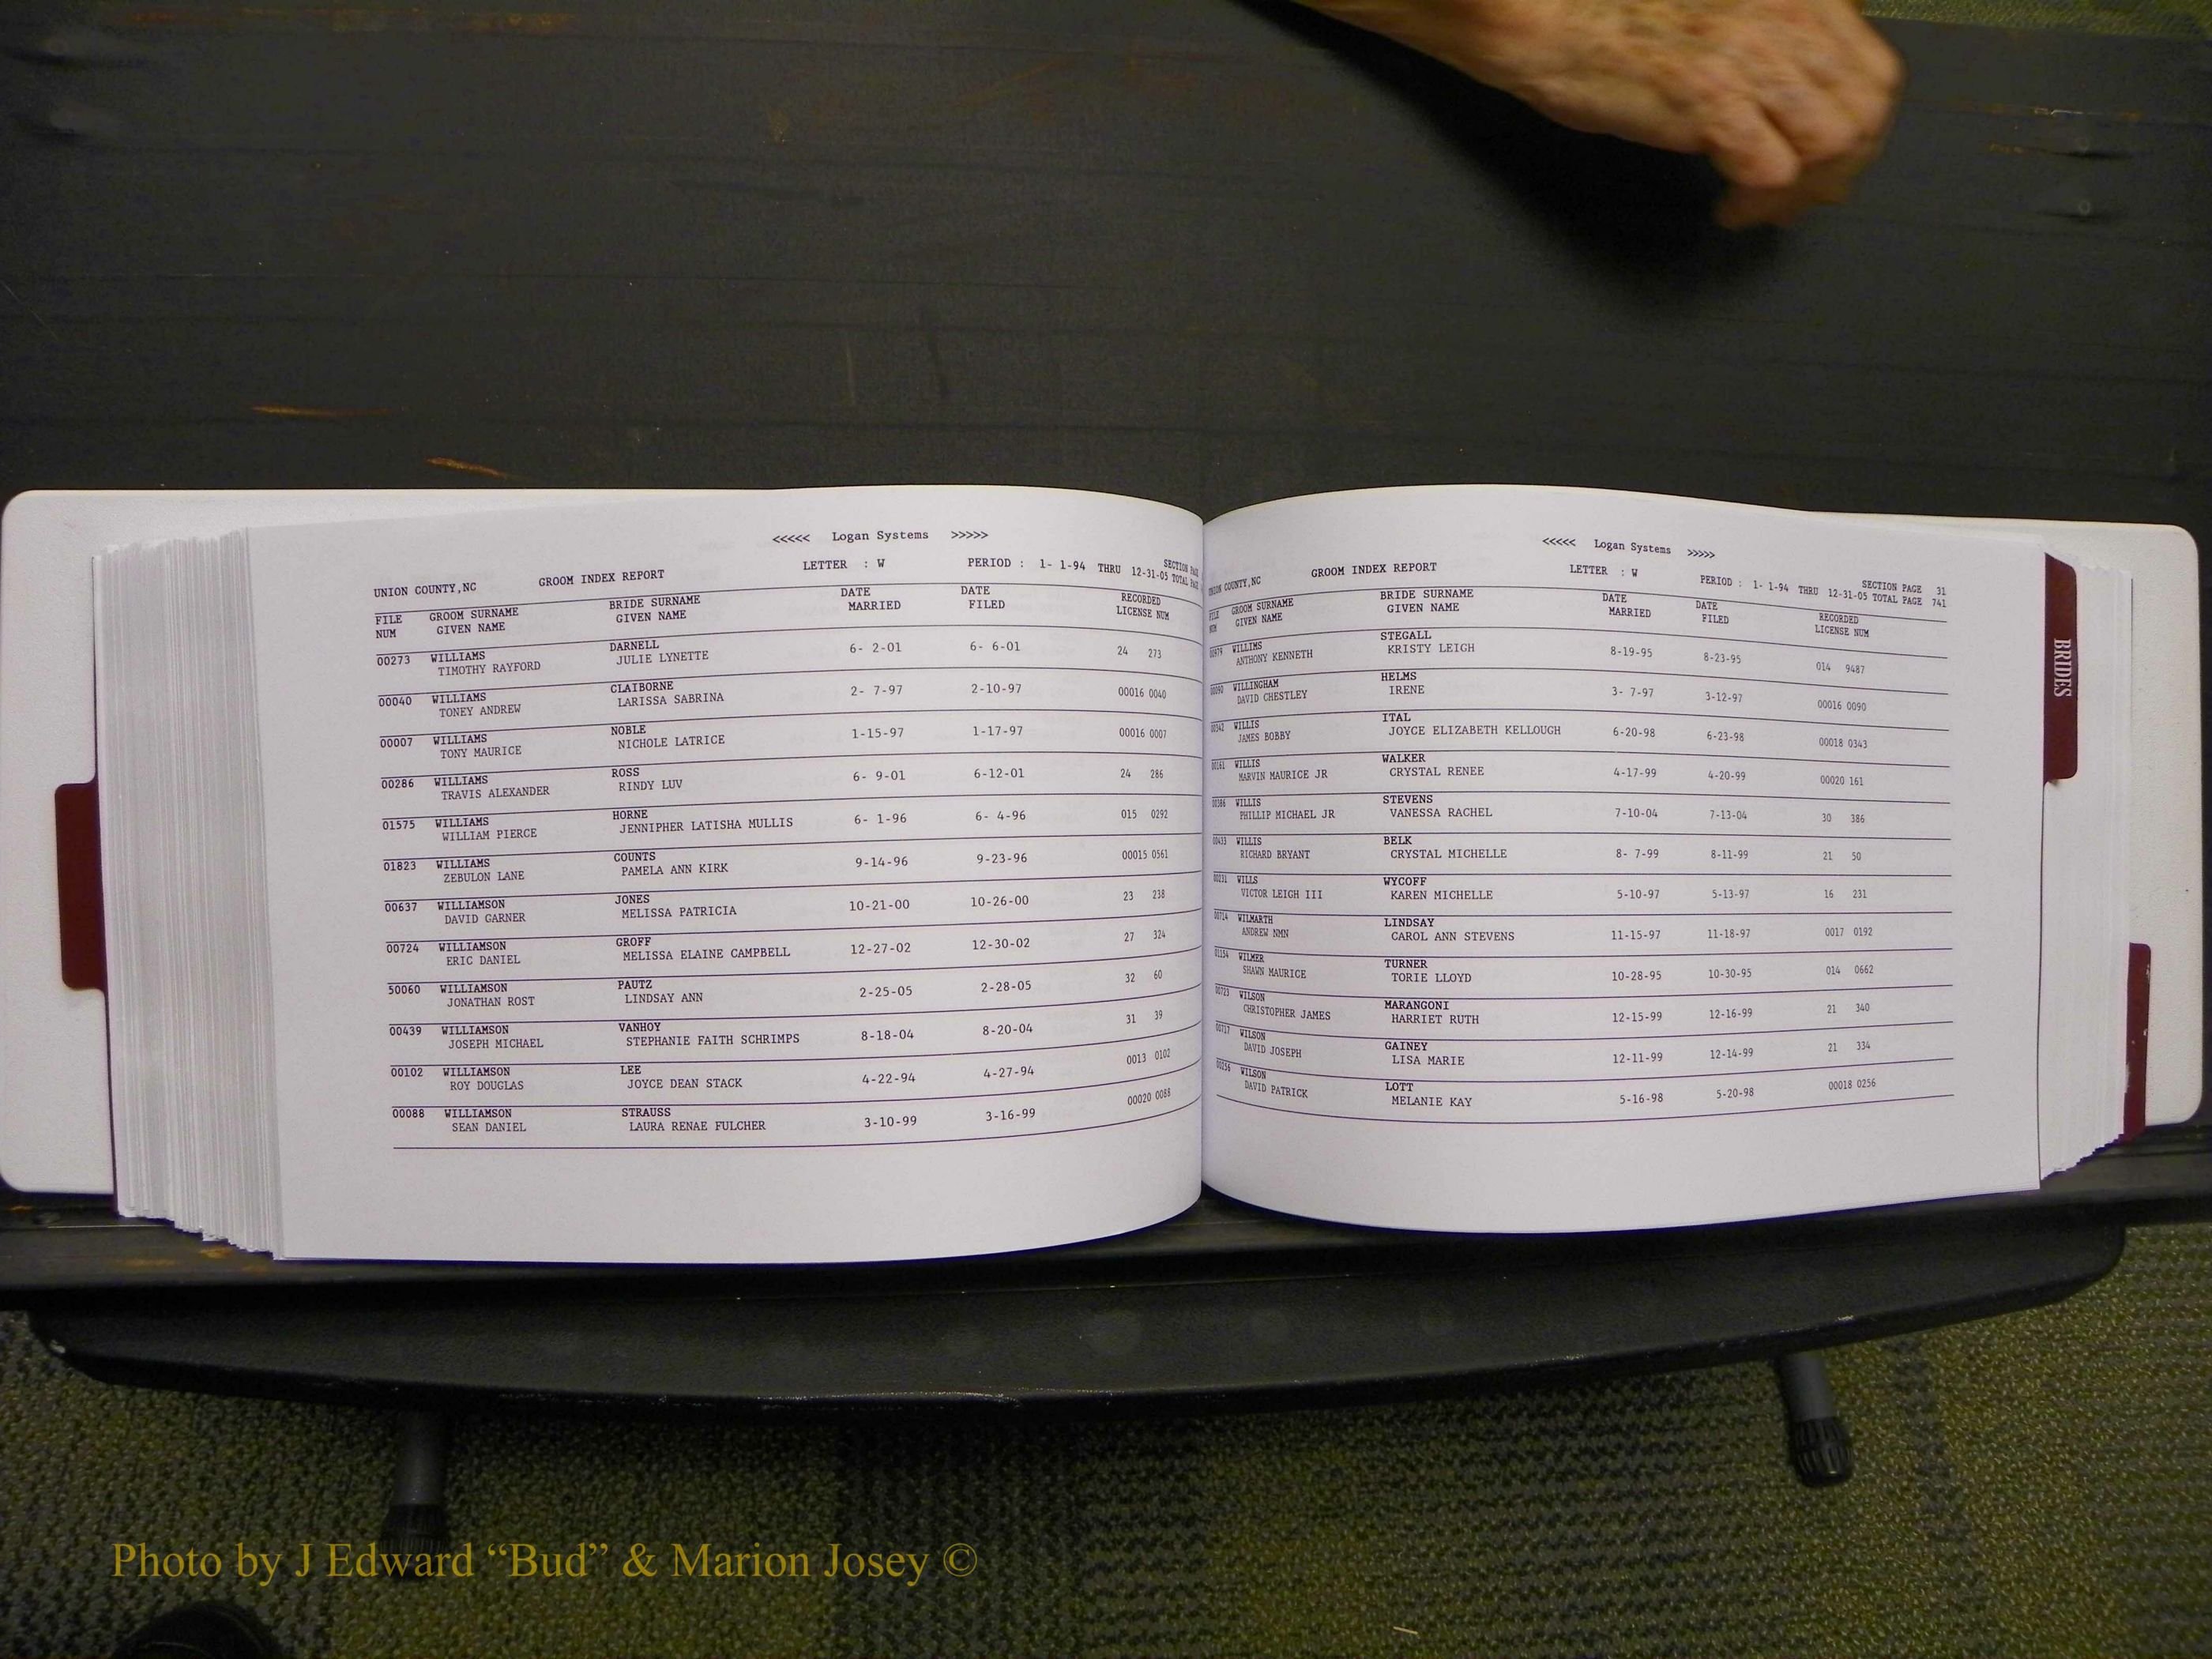 <<<<< Logan Systems >>>>>
UNION COUNTY,NC GROOM INDEX REPORT LETTER : W PERIOD : 1- 1-94 THRU 12-31-05 SECTION TOTAL
FILE GROOM SURNAME BRIDE SURNAME DATE DATE RECORDED
NUM GIVEN NAME GIVEN NAME MARRIED FILED LICENSE NUM
00273 WILLIAMS DARNELL 6- 2-01 6- 6-01 24 273
TIMOTHY RAYFORD JULIE LYNETTE
00040 WILLIAMS CLAIBORNE 2- 7-97 2-10-97 00016 0040
TONEY ANDREW LARISSA SABRINA
00007 WILLIAMS NOBLE 1-15-97 1-17-97 00016 0007
TONY MAURICE NICHOLE LATRICE
00286 WILLIAMS ROSS 6- 9-01 6-12-01 24 286
TRAVIS ALEXANDER RINDY LUV
01575 WILLIAMS HORNE 6- 1-96 6- 4-96 015 0292
WILLIAM PIERCE JENNIPHER LATISHA MULLIS
01823 WILLIAMS COUNTS 9-14-96 9-23-96 00015 0561
ZEBULON LANE PAMELA ANN KIRK
00637 WILLIAMSON JONES 10-21-00 10-26-00 23 238
DAVID GARNER MELISSA PATRICIA
00724 WILLIAMSON GROFF 12-27-02 12-30-02 27 324
ERIC DANIEL MELISSA ELAINE CAMPBELL
50060 WILLIAMSON PAUTZ 2-25-05 2-28-05 32 60
JONATHAN ROST LINDSAY ANN
00439 WILLIAMSON VANHOY 8-18-04 8-20-04 31 39
JOSEPH MICHAEL STEPHANIE FAITH SCHRIMPS
00102 WILLIAMSON LEE 4-22-94 4-27-94 0013 0102
ROY DOUGLAS JOYCE DEAN STACK
00088 WILLIAMSON STRAUSS 3-10-99 3-16-99 00020 0088
SEAN DANIEL LAURA RENAE FULCHER
<<<<< Logan Systems >>>>>
UNION COUNTY,NC GROOM INDEX REPORT LETTER : W PERIOD : 1- 1-94 THRU 12-31-05 SECTION PAGE 31
TOTAL PAGE 741
FILE GROOM SURNAME BRIDE SURNAME DATE DATE RECORDED
NUM GIVEN NAME GIVEN NAME MARRIED FILED LICENSE NUM
WILLIMS STEGALL 8-19-95 8-23-95 014 9487
ANTHONY KENNETH KRISTY LEIGH
00090 WILLINGHAM HELMS 3- 7-97 3-12-97 00016 0090
DAVID CHESTLEY IRENE
WILLIS ITAL 6-20-98 6-23-98 00018 0343
JAMES BOBBY JOYCE ELIZABETH KELLOUGH
00161 WILLIS WALKER 4-17-99 4-20-99 00020 161
MARVIN MAURICE JR CRYSTAL RENEE
00386 WILLIS STEVENS 7-10-04 7-13-04 30 386
PHILLIP MICHAEL JR VANESSA RACHEL
00433 WILLIS BELK 8- 7-99 8-11-99 21 50
RICHARD BRYANT CRYSTAL MICHELLE
00231 WILLS WYCOFF 5-10-97 5-13-97 16 231
VICTOR LEIGH III KAREN MICHELLE
00714 WILMARTH LINDSAY 11-15-97 11-18-97 0017 0192
ANDREW NMN CAROL ANN STEVENS
01154 WILMER TURNER 10-28-95 10-30-95 014 0662
SHAWN MAURICE TORIE LLOYD
00723 WILSON MARANGONI 12-15-99 12-16-99 21 340
CHRISTOPHER JAMES HARRIET RUTH
00717 WILSON GAINEY 12-11-99 12-14-99 21 334
DAVID JOSEPH LISA MARIE
00256 WILSON LOTT 5-16-98 5-20-98 00018 0256
DAVID PATRICK MELANIE KAY
BRIDES
Photo by J Edward “Bud” & Marion Josey ©